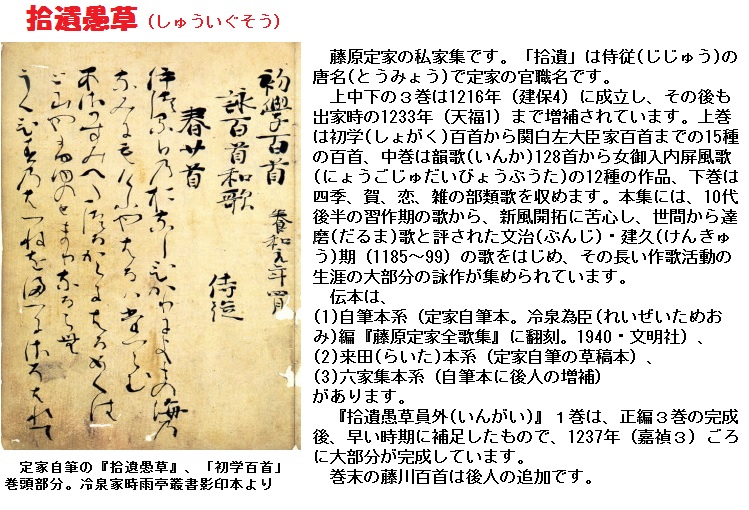 拾遺愚草(しゅういぐそう)
初學百首 養和元年四月
詠百首和歌
侍従
春廿首
定家自筆の『拾遺愚草』、「初学百首」
巻頭部分。冷泉家時雨亭叢書影印本より
藤原定家の私家集です。「拾遺」は侍従(じじゅう)の
唐名(とうみょう)で定家の官職名です。
上中下の３巻は1216年（建保4）に成立し、その後も
出家時の1233年（天福1）まで増補されています。上巻
は初学(しょがく)百首から関白左大臣家百首までの15種
の百首、中巻は韻歌(いんか)128首から女御入内屏風歌
(にょうごじゅだいびょうぶうた)の12種の作品、下巻は
四季、賀、恋、雑の部類歌を収めます。本集には、10代
後半の習作期の歌から、新風開拓に苦心し、世間から達
磨(だるま)歌と評された文治(ぶんじ)・建久(けんきゅ
う)期（1185～99）の歌をはじめ、その長い作歌活動の
生涯の大部分の詠作が集められています。
伝本は、
(1)自筆本系（定家自筆本。冷泉為臣(れいぜいためお
み)編『藤原定家全歌集』に翻刻。1940・文明社）、
(2)来田(らいた)本系（定家自筆の草稿本）、
(3)六家集本系（自筆本に後人の増補）
があります。
『拾遺愚草員外(いんがい)』１巻は、正編３巻の完成
後、早い時期に補足したもので、1237年（嘉禎３）ごろ
に大部分が完成しています。
巻末の藤川百首は後人の追加です。